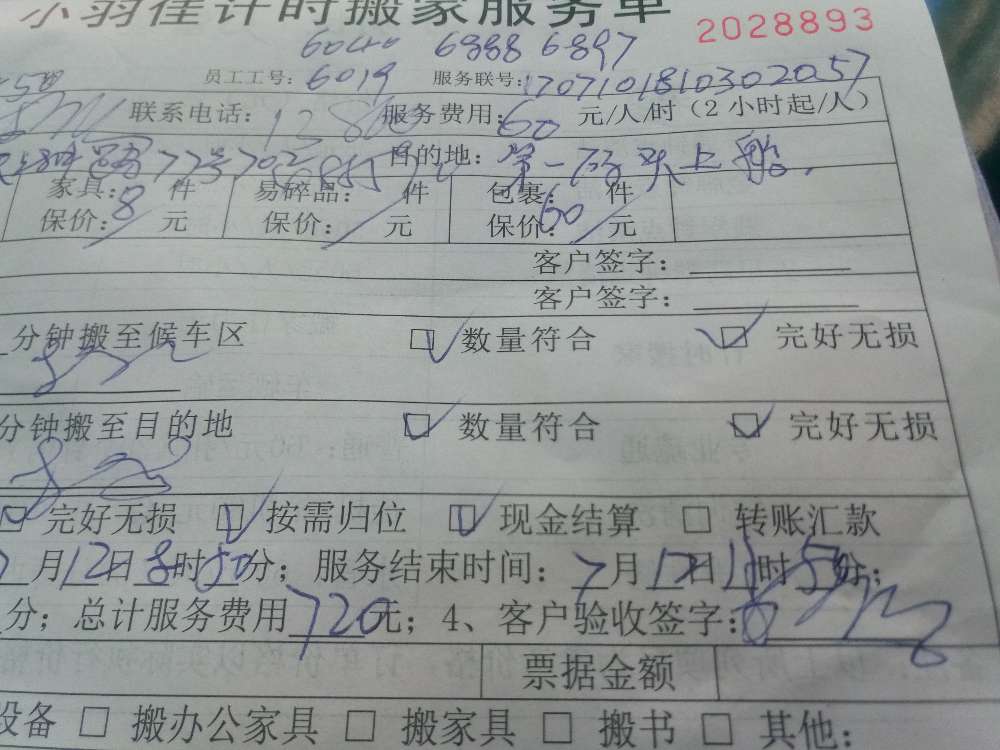 小羽佳计时搬家服务单 2028893
6040 6888 6897
员工工号: 6019 服务联号: 170710181030 2057
联系电话: 服务费用: 60 元/人/时(2小时起/人)
目的地: 第一码头上船.
家具: 8 件 易碎品: 件 包裹: 60 件
保价: 元 保价: 元 保价: 元
客户签字:
客户签字:
分钟搬至候车区 数量符合 完好无损
分钟搬至目的地 数量符合 完好无损
完好无损 按需归位 现金结算 转账汇款
月12日8时50分; 服务结束时间: 7月12日11时50分;
分; 总计服务费用 720元; 4、客户验收签字:
票据金额
设备 搬办公家具 搬家具 搬书 其他: